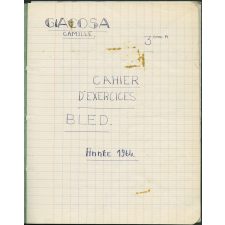 GALOSA
CAMILLE.
3ème A
CAHIER
D'EXERCICES
BLED.
Année 1964.